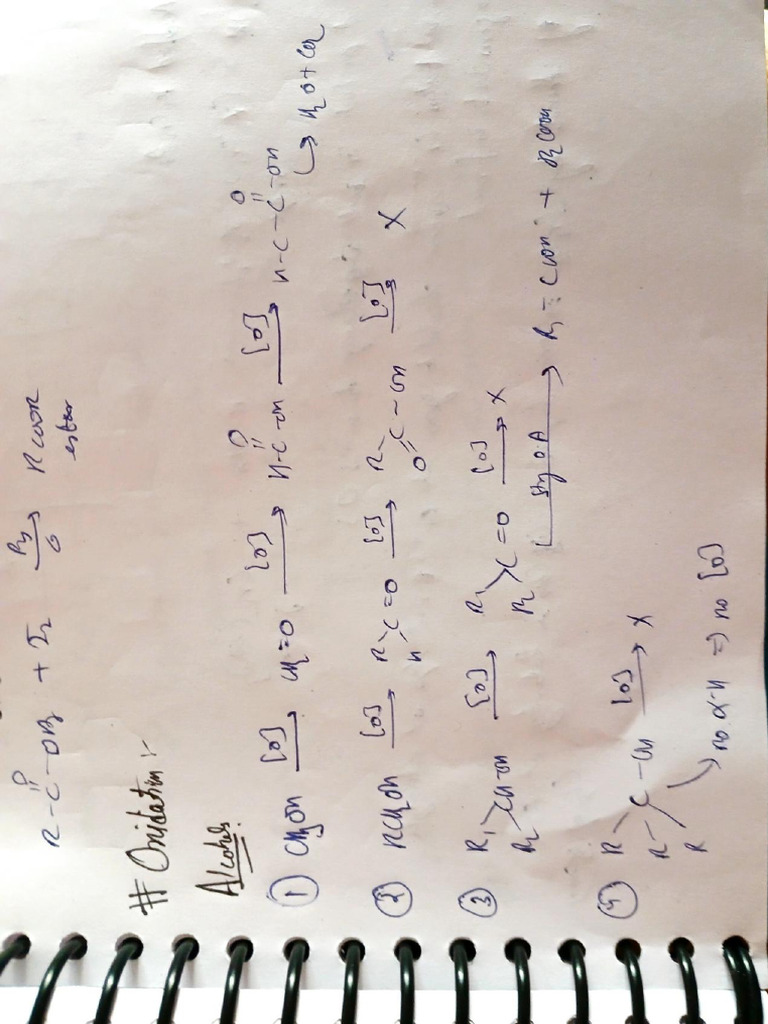 R-C(=O)-OAg + I2 →(Ag, Δ) RCOOR
ester
# Oxidation :-
Alcohol
① CH3OH →[O] CH2=O →[O] H-C(=O)-OH →[O] H-C-C(=O)-OH
↳ H2O + CO2
② RCH2OH →[O] R-C(H)=O →[O] R-C(=O)-OH →[O] X
③ R1 R2 CH-OH →[O] R1 R2 C=O →[O] X
Stg O.A → R1-COOH + R2COOH
④ R R R C-OH →[O] X
↳ no α-H ⇒ no [O]